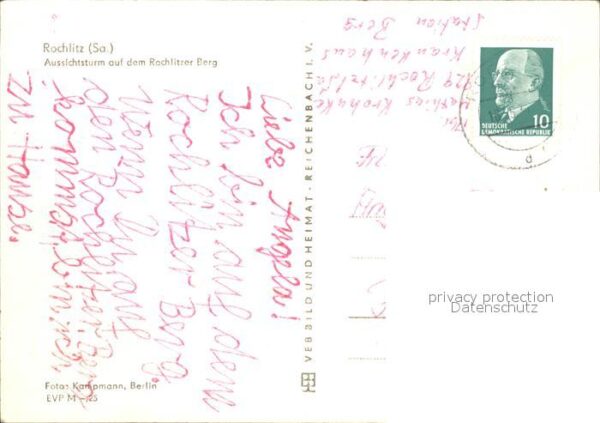 Rochlitz (Sa.)
Aussichtsturm auf dem Rochlitzer Berg
Liebe Angela!
Ich bin auf dem
Rochlitzer Berg.
Wenn Du auf
den Rochlitzer Berg
kommst, bin ich
zu Hause.
Foto: Kampmann, Berlin
EVP M –,25
VEB BILD UND HEIMAT · REICHENBACH I. V.
Krankenhaus
Station Berg
10
DEUTSCHE
DEMOKRATISCHE REPUBLIK
d
privacy protection
Datenschutz